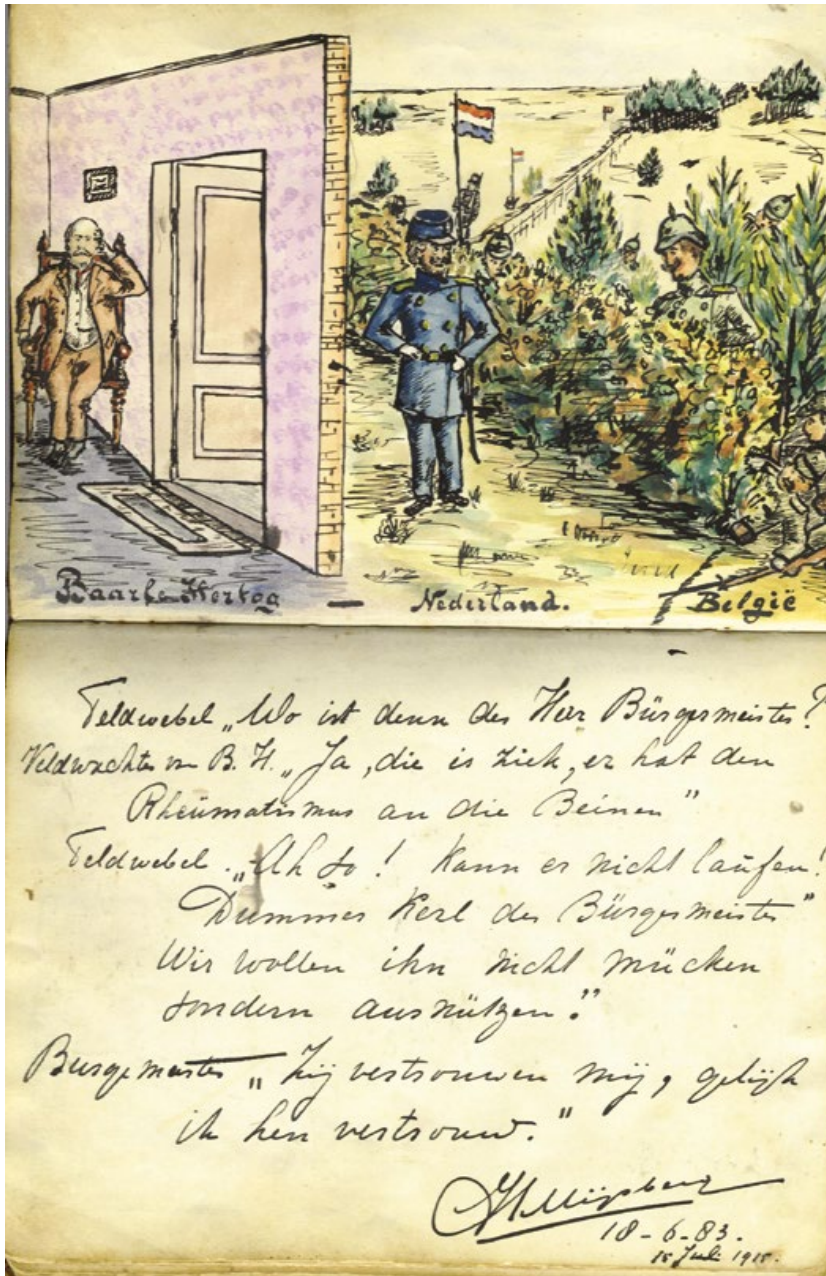 Baarle-Hertog — Nederland. België
Feldwebel „Wo ist denn der Herr Bürgermeister?
Veldwachter van B. H. „Ja, die is ziek, er hat den
Rheümatismus an die Beinen"
Feldwebel. „Ah so! Kann er nicht laufen!
Dummer Kerl der Bürgermeister"
Wir wollen ihn nicht mücken
sondern ausnützen."
Burgemeester „Zij vertrouwen mij, gelijk
ik hen vertrouw."
18-6-83.
15 Juli 1915.